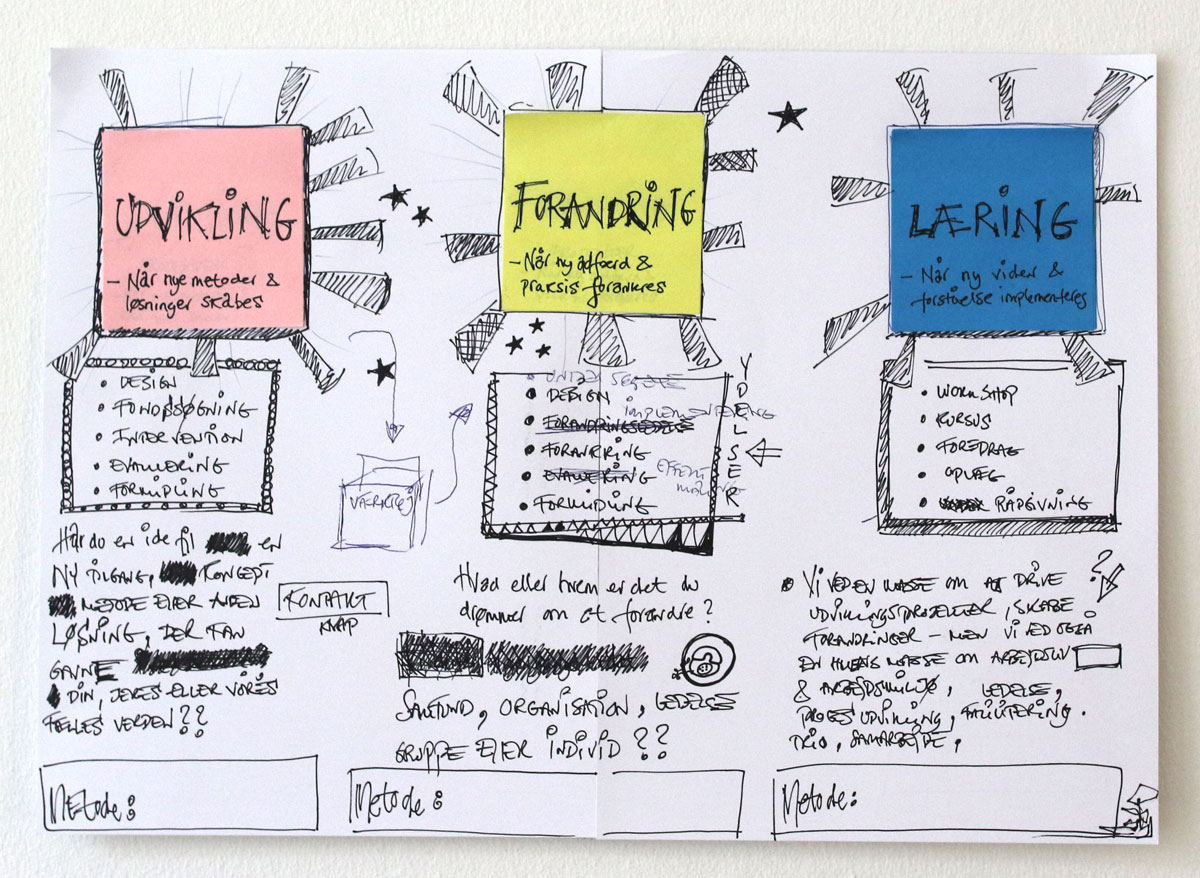 UDVIKLING
- Når nye metoder &
løsninger skabes
DESIGN
FONDSSØGNING
INTERVENTION
EVALUERING
FORMIDLING
Har du en ide til en
NY TILGANG, KONCEPT
METODE ELLER ANDEN
LØSNING, DER KAN
GAVNE
DIN, JERES ELLER VORES
FÆLLES VERDEN??
Metode:
VÆRKTØJ
KONTAKT
KNAP
FORANDRING
- Når ny adfærd &
praksis forankres
DESIGN
IMPLEMENTERING
FORANDRINGSLEDELSE
FORANKRING
EVALUERING
EFFEKT
MÅLING
FORMIDLING
YDELSER
Hvad eller hvem er det du
drømmer om at forandre?
SAMFUND, ORGANISATION, LEDELSE
GRUPPE ELLER INDIVID??
Metode:
LÆRING
- Når ny viden &
forståelse implementeres
WORKSHOP
KURSUS
FOREDRAG
OPLÆG
RÅDGIVNING
?
VI VED EN MASSE OM AT DRIVE
UDVIKLINGSPROJEKTER, SKABE
FORANDRINGER - MEN VI VED OGSÅ
EN MASSE OM ARBEJDSLIV
& ARBEJDSMILJØ, LEDELSE,
PROCESUDVIKLING, FACILITERING.
TRIO, SAMARBEJDE,
Metode: